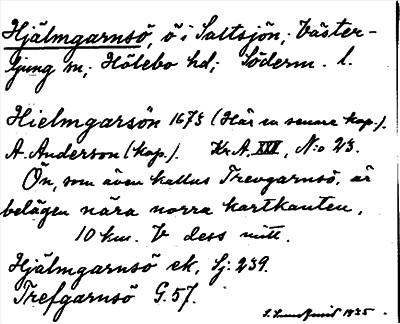 Hjälmgarnsö, ö i Saltsjön; Väster-
ljung sn; Hölebo hd; Söderm. l.
Hielmgarsön 1673 (Här en senare kop.).
A. Anderson (kop.). Kr.A. XXV, N:o 23.
Ön, som även kallas Trevgarnsö, är
belägen nära norra kartkanten,
10 km. V dess mitt.
Hjälmgarnsö ek, Sj. 239.
Trefgarnsö G. 57.
1935